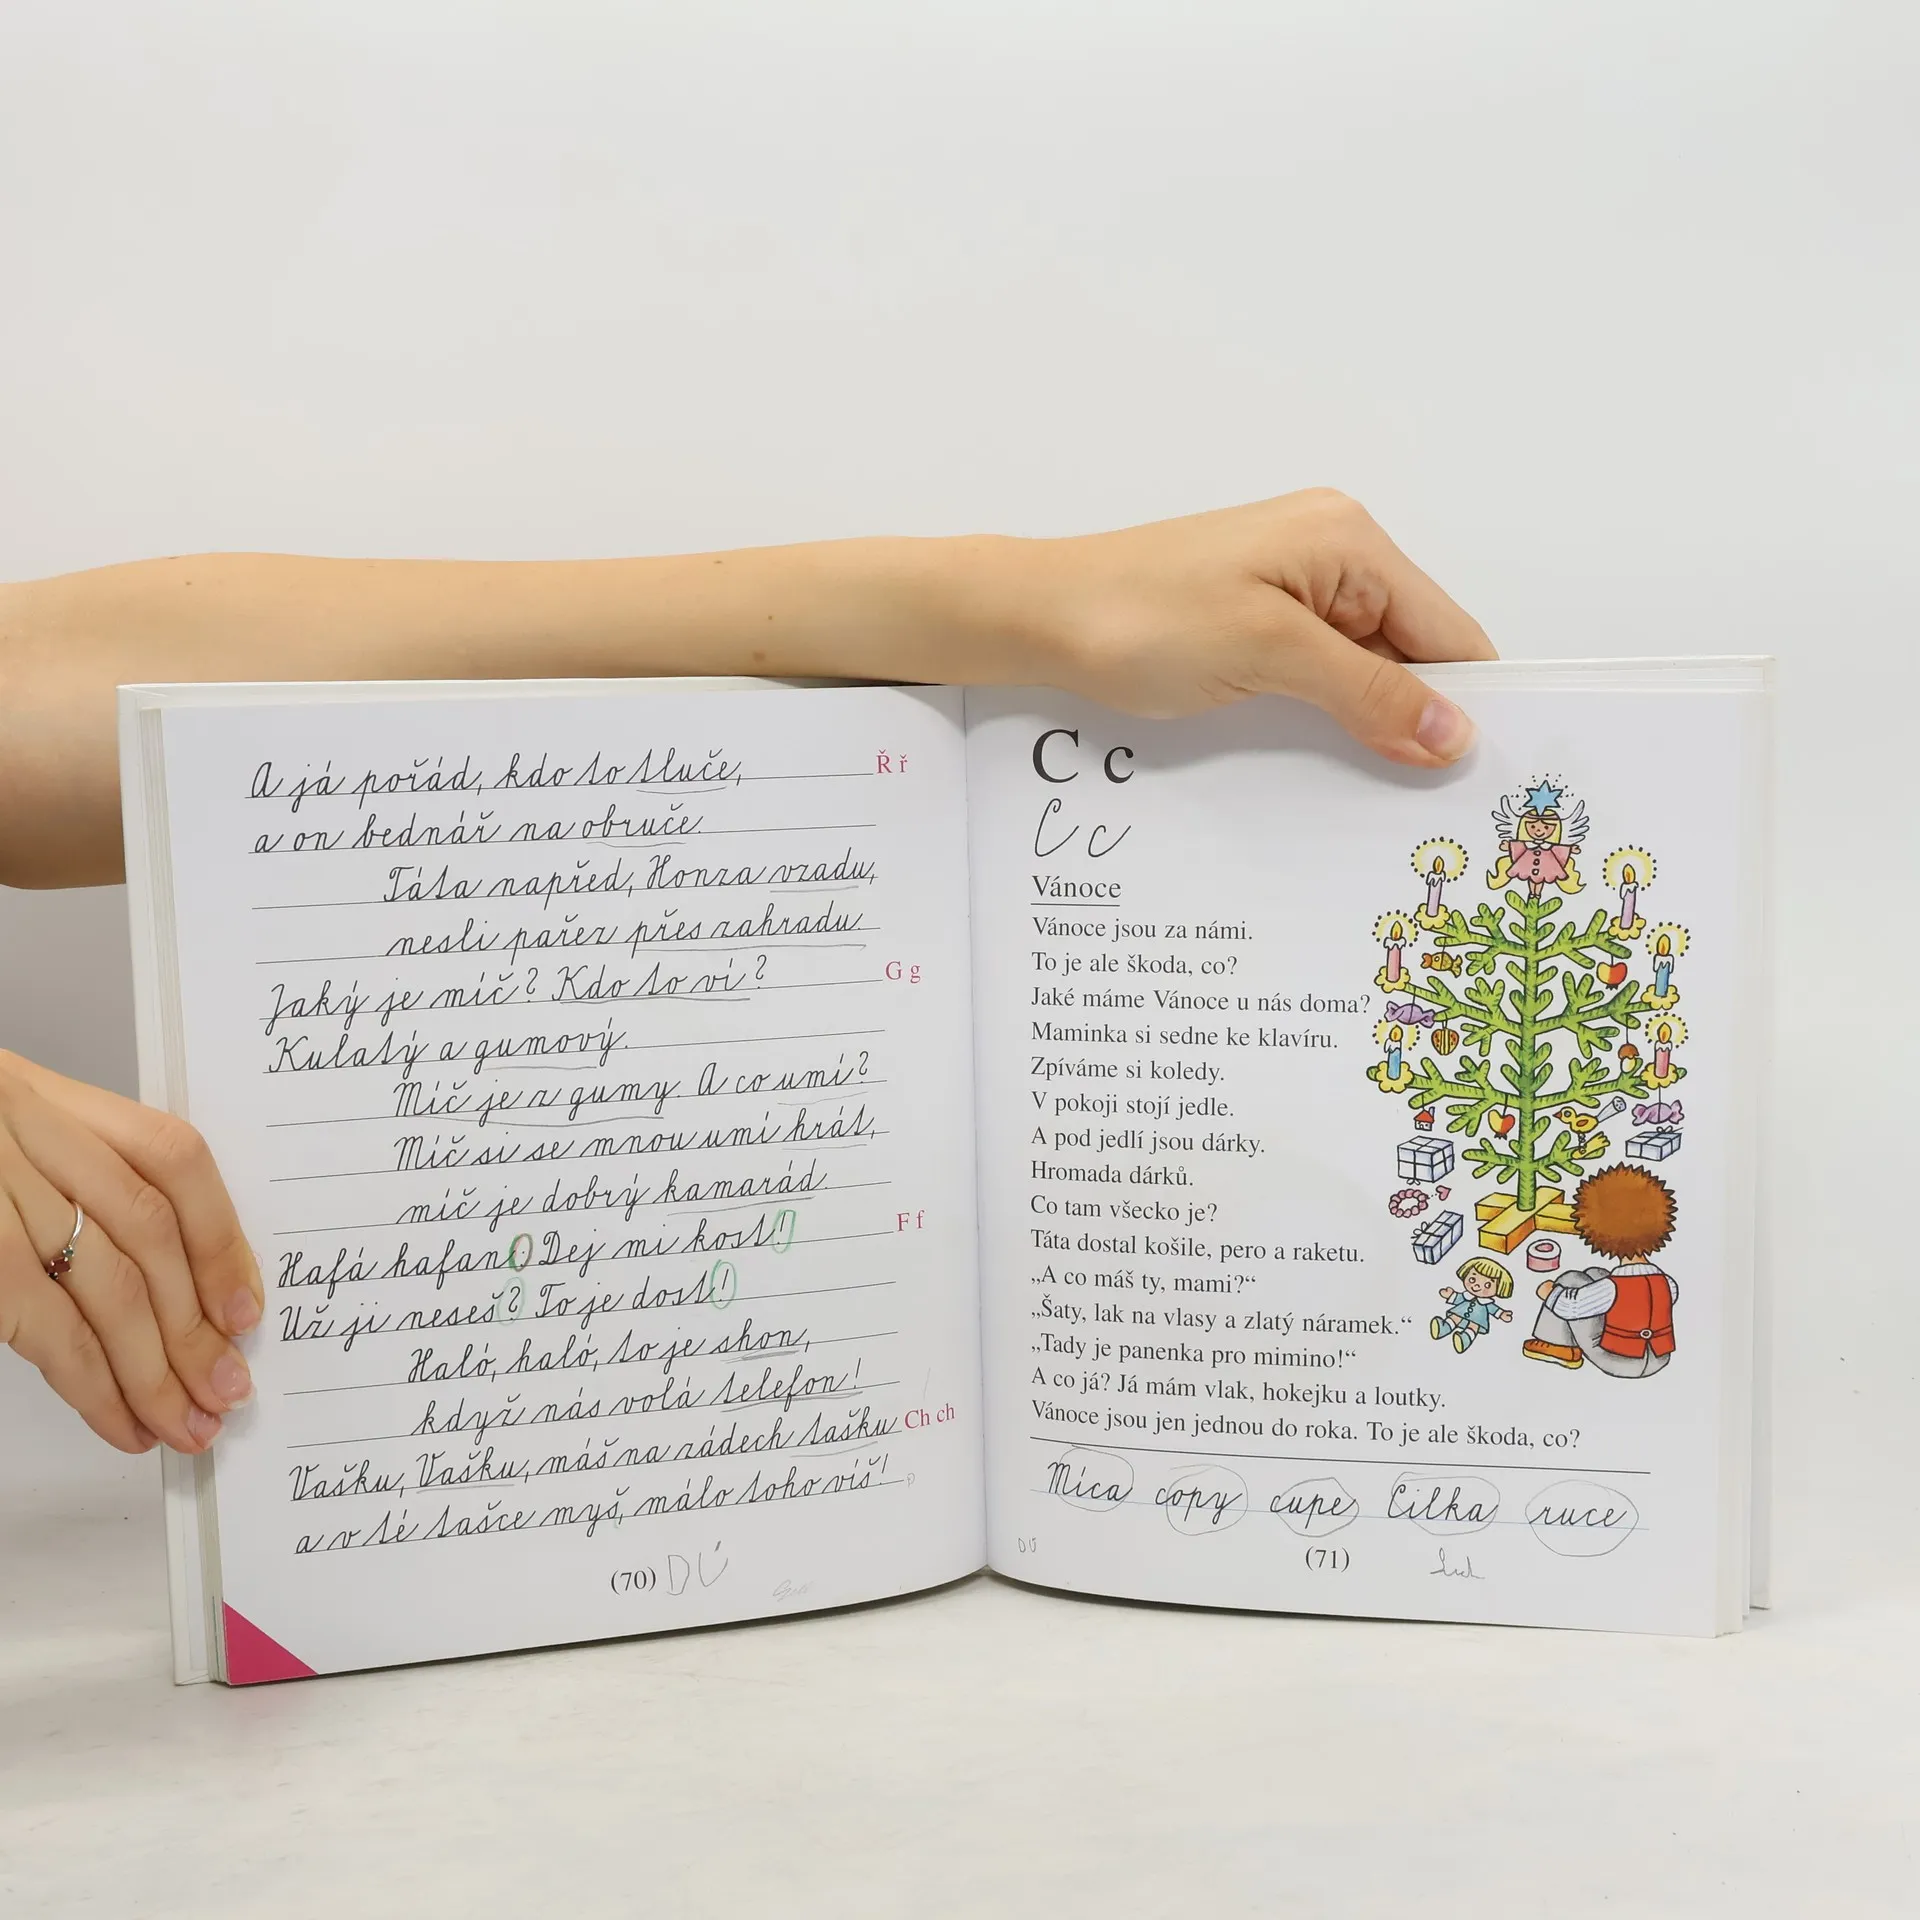 A já pořád, kdo to tluče, Ř ř
a on bednář na obruče.
Táta napřed, Honza vzadu,
nesli pařez přes zahradu.
Jaký je míč? Kdo to ví? G g
Kulatý a gumový.
Míč je z gumy. A co umí?
Míč si se mnou umí hrát,
míč je dobrý kamarád.
Hafá hafan: Dej mi kost! F f
Už ji neseš? To je dost!
Haló, haló, to je shon,
když nás volá telefon!
Vašku, Vašku, máš na zádech tašku Ch ch
a v té tašce myš, málo toho víš!
(70) DÚ
C c
C c
Vánoce
Vánoce jsou za námi.
To je ale škoda, co?
Jaké máme Vánoce u nás doma?
Maminka si sedne ke klavíru.
Zpíváme si koledy.
V pokoji stojí jedle.
A pod jedlí jsou dárky.
Hromada dárků.
Co tam všecko je?
Táta dostal košile, pero a raketu.
„A co máš ty, mami?“
„Šaty, lak na vlasy a zlatý náramek.“
„Tady je panenka pro mimino!“
A co já? Já mám vlak, hokejku a loutky.
Vánoce jsou jen jednou do roka. To je ale škoda, co?
Míca copy cupe Cilka ruce
DÚ
(71)